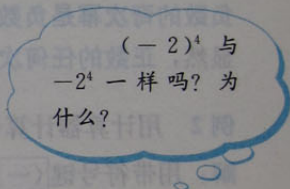 (－2)⁴ 与
－2⁴ 一样吗? 为
什么?